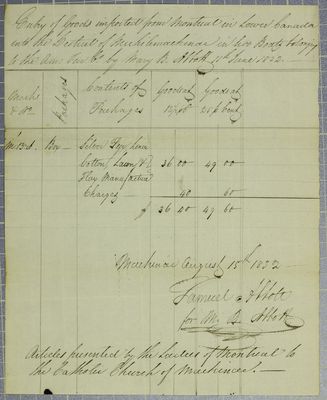 Entry of Goods imported from Montreal in Lower Canada
into the District of Michilimackinac in two Boats belonging
to the Am. Fur Co. by Mary B. Abbott 11th June 1832.
Marks & No.
Packages
Contents of Packages
Goods at
Goods at
Box — Silver
Cotton, Lawn &
Flax Manufacture
36 00 49 00
Charges — 40 60
$ 36 40 49 60
Mackinac August 15th 1832 —
Samuel Abbott
for M. B. Abbott
Articles presented by the Ladies of Montreal to
the Catholic Church of Mackinac. —